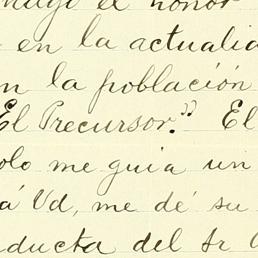 el honor
en la actualid
n la población
El Precursor." El
olo me guia un
á Ud, me dé su
ducta del Sr